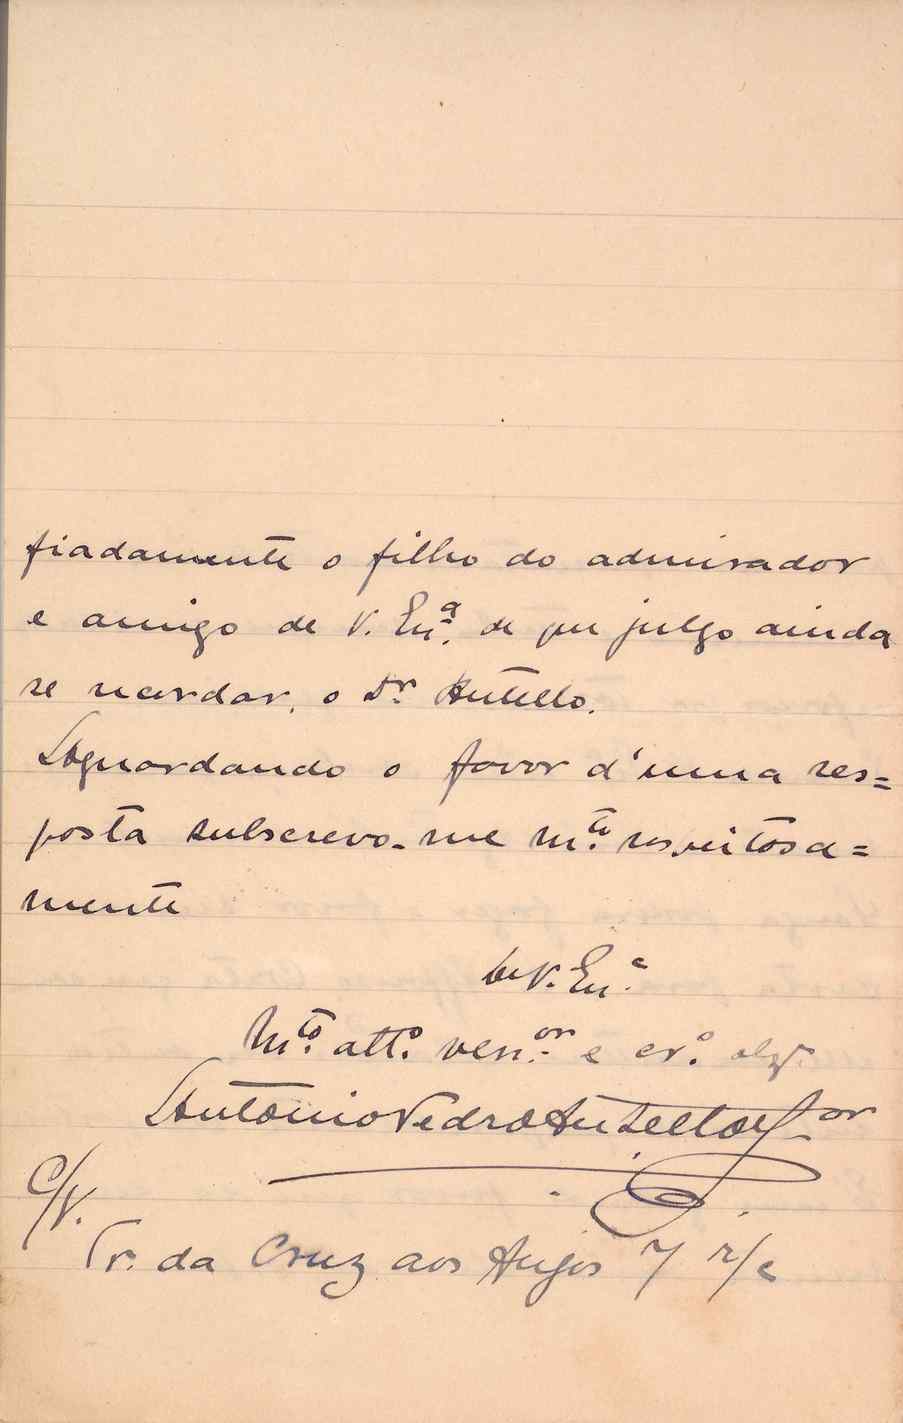 fiadamente o filho do admirador
e amigo de V. Ex.ª de que julgo ainda
se recordar, o Dr. Antello.
Aguardando o favor d'uma res=
posta subscrevo-me m.to respeitosa=
mente
De V. Ex.ª
M.to att.o ven.or e cr.o obg.o
Antonio Pedro Antello Jor
C/V.
Tr. da Cruz aos Anjos 7 r/c